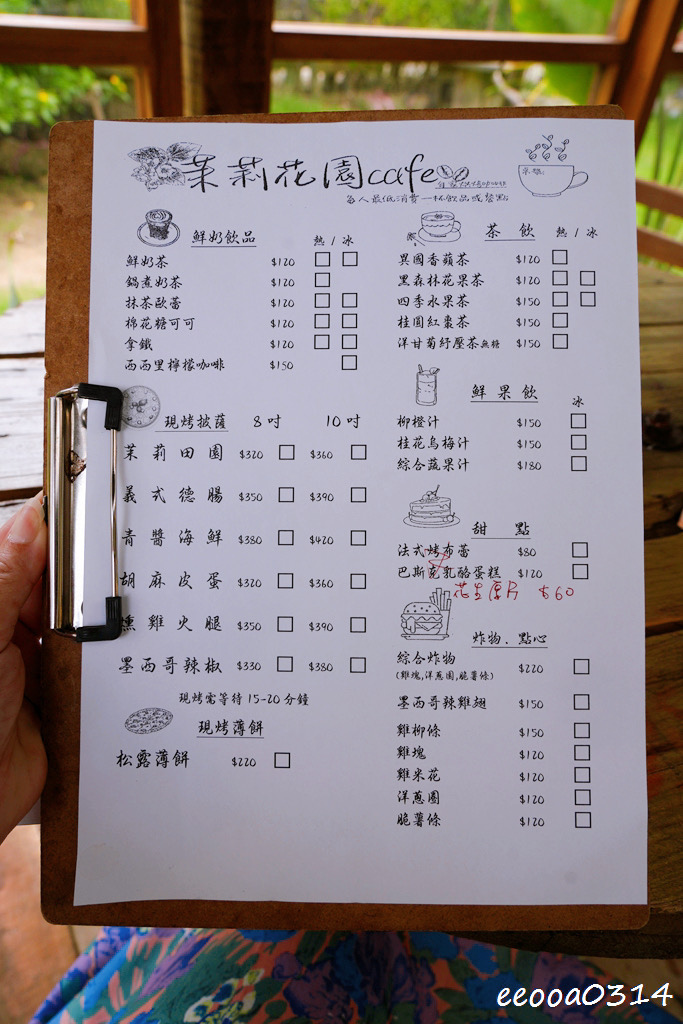 茉莉花園cafe
每人最低消費一杯飲品或餐點
鮮奶飲品 熱/冰
鮮奶茶 $120
鍋煮奶茶 $120
抹茶歐蕾 $120
棉花糖可可 $120
拿鐵 $120
西西里檸檬咖啡 $150
現烤披薩 8吋 10吋
茉莉田園 $320 $360
義式德腸 $350 $390
青醬海鮮 $380 $420
胡麻皮蛋 $320 $360
燻雞火腿 $350 $390
墨西哥辣椒 $330 $380
現烤需等待15-20分鐘
現烤薄餅
松露薄餅 $220
茶飲 熱/冰
異國香蘋茶 $120
黑森林花果茶 $120
四季水果茶 $150
桂圓紅棗茶 $150
洋甘菊紓壓茶無糖 $150
鮮果飲 冰
柳橙汁 $150
桂花烏梅汁 $150
綜合蔬果汁 $180
甜點
法式烤布蕾 $80
巴斯克乳酪蛋糕 $120
花生厚片 $60
炸物.點心
綜合炸物 $220
(雞塊,洋蔥圈,脆薯條)
墨西哥辣雞翅 $150
雞柳條 $150
雞塊 $120
雞米花 $120
洋蔥圈 $120
脆薯條 $120
eeooa0314